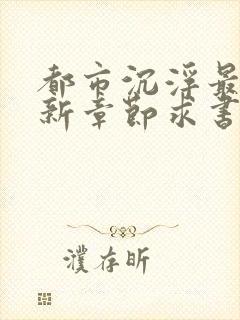 都市沉浮最
新章节求书
濮存昕